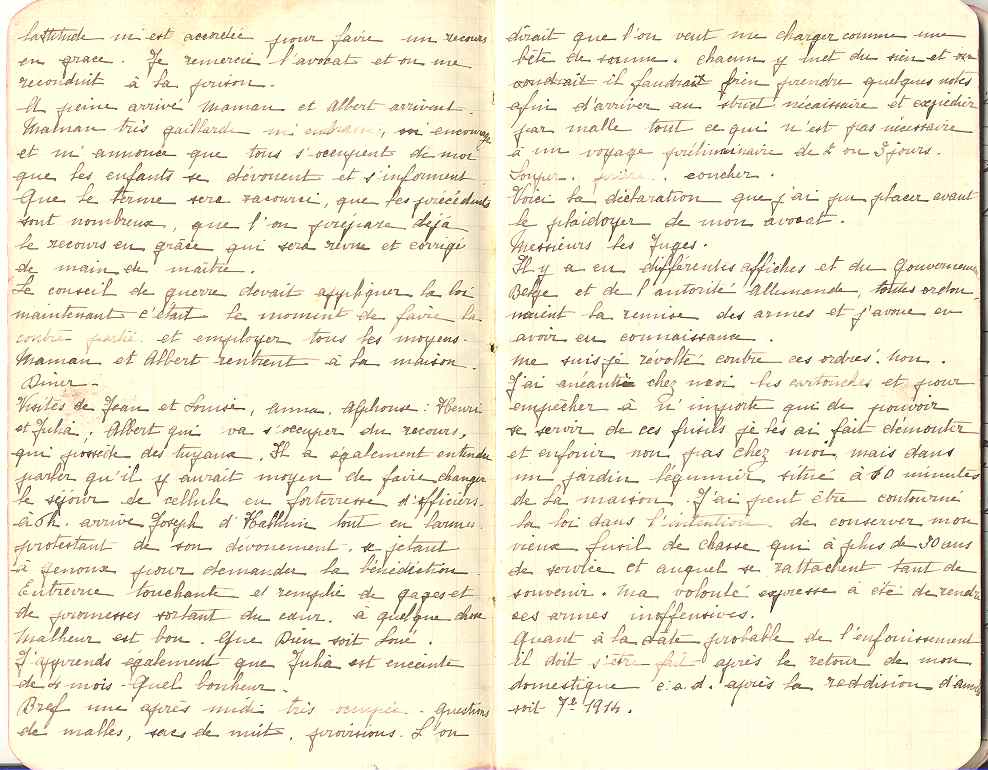 lattitude m'est accordée pour faire un recours
en grace. Je remercie l'avocat et on me
reconduit à la prison.
A peine arrivé Maman et Albert arrivent.
Maman très gaillarde m'entraine, m'encourage
et m'annonce que tous s'occupent de moi
que les enfants se dévouent et s'informent.
Que le terme sera racourci, que les précédents
sont nombreux, que l'on prépare déjà
le recours en grâce qui sera revu et corrigé
de main de maître.
Le conseil de guerre devait appliquer la loi
maintenant c'était le moment de faire la
contre partie et employer tous les moyens.
Maman et Albert rentrent à la maison.
Diner.
Visites de Jean et Louise, Anna, Alphonse, Henri
et Julia, Albert qui va s'occuper du recours,
qui possède des tuyaux. Il a également entendu
parler qu'il y aurait moyen de faire changer
le séjour de cellule en forteresse d'officiers.
à 5h. arrive Joseph d'Halluin tout en larmes
protestant de son dévouement, se jetant
à genoux pour demander la bénédiction.
Entrevue touchante et remplie de gages et
de promesses sortant du cœur. à quelque chose
Malheur est bon. Que Dieu soit Loué.
J'apprends également que Julia est enceinte
de 4 mois. Quel bonheur.
Bref une après midi très occupée. Questions
de malles, sacs de nuit, provisions. L'on
dirait que l'on veut me charger comme une
bête de somme. Chacun y met du sien et
voudrait il faudrait bien prendre quelques notes
afin d'arriver au strict nécaissaire et expédier
par malle tout ce qui n'est pas nécessaire
à un voyage préliminaire de 2 ou 3 jours.
Souper, prière, coucher.
Voici la déclaration que j'ai pu placer avant
le plaidoyer de mon avocat.
Messieurs les Juges.
Il y a eu différentes affiches et du Gouvernement
Belge et de l'autorité Allemande, toutes ordon-
naient la remise des armes et j'avoue en
avoir eu connaissance.
Me suis-je révolté contre ces ordres? non.
J'ai anéanti chez moi les cartouches et pour
empêcher à n'importe qui de pouvoir
se servir de ces fusils je les ai fait démonter
et enfouir non pas chez moi mais dans
un jardin légumier situé à 10 minutes
de la maison. J'ai peut être contourné
la loi dans l'intention de conserver mon
vieux fusil de chasse qui à plus de 30 ans
de service et auquel se rattachent tant de
souvenir. Ma volonté expresse à été de rendre
ces armes inoffensives.
Quant à la date probable de l'enfouissement
il doit s'être fait après le retour de mon
domestique c.a.d. après la reddision d'Anvers
soit 7e 1914.